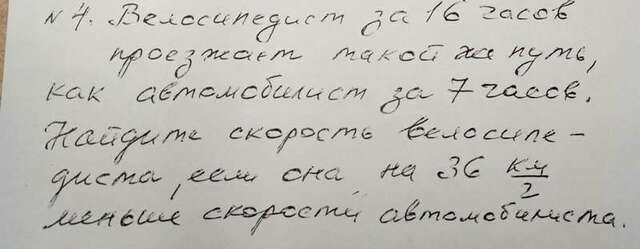 № 4. Велосипедист за 16 часов
проезжает такой же путь,
как автомобилист за 7 часов.
Найдите скорость велосипе-
диста, если она на 36 км/г
меньше скорости автомобилиста.